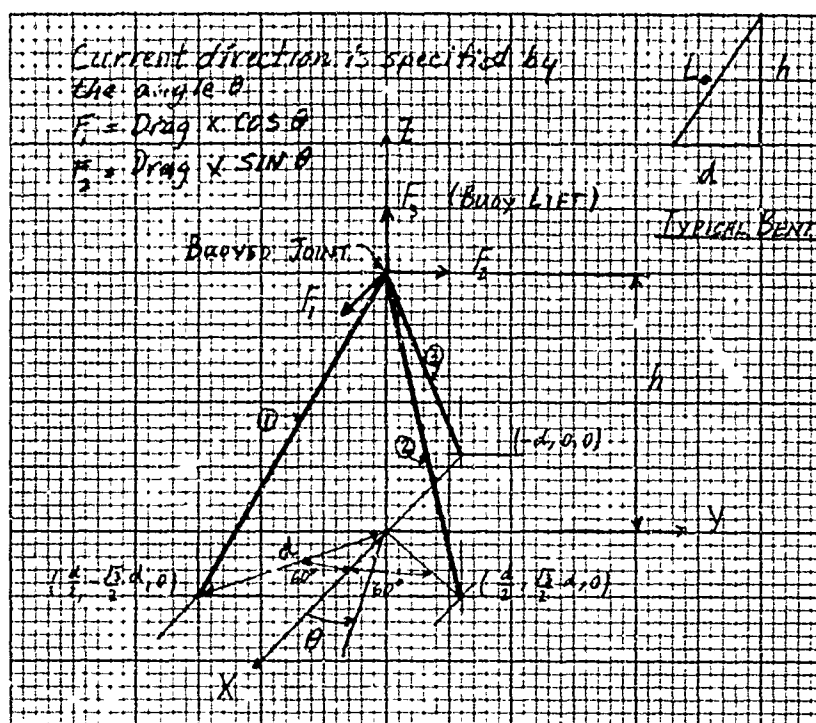 Current direction is specified by
the angle θ
F₁ = Drag x COS θ
F₂ = Drag x SIN θ
L
h
d
TYPICAL BENT
Z
F₃ (BUOY LIFT)
BUOYED JOINT
F₂
F₁
h
①
②
③
(-d,0,0)
Y
d
60°
60°
(d/2, -√3/2 d, 0)
(d/2, √3/2 d, 0)
θ
X